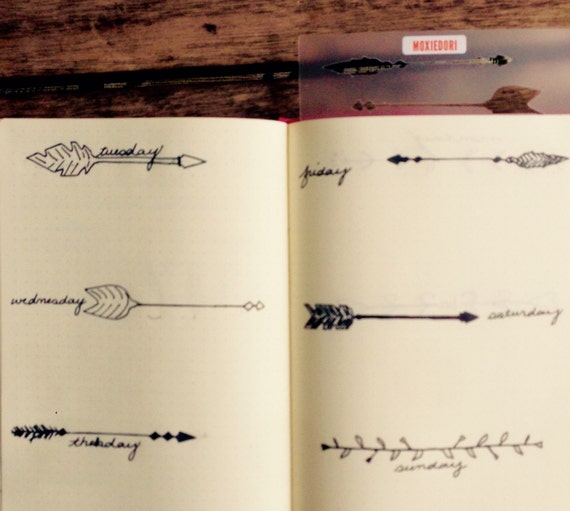 MOXIEDORI
tuesday
wednesday
thursday
friday
saturday
sunday